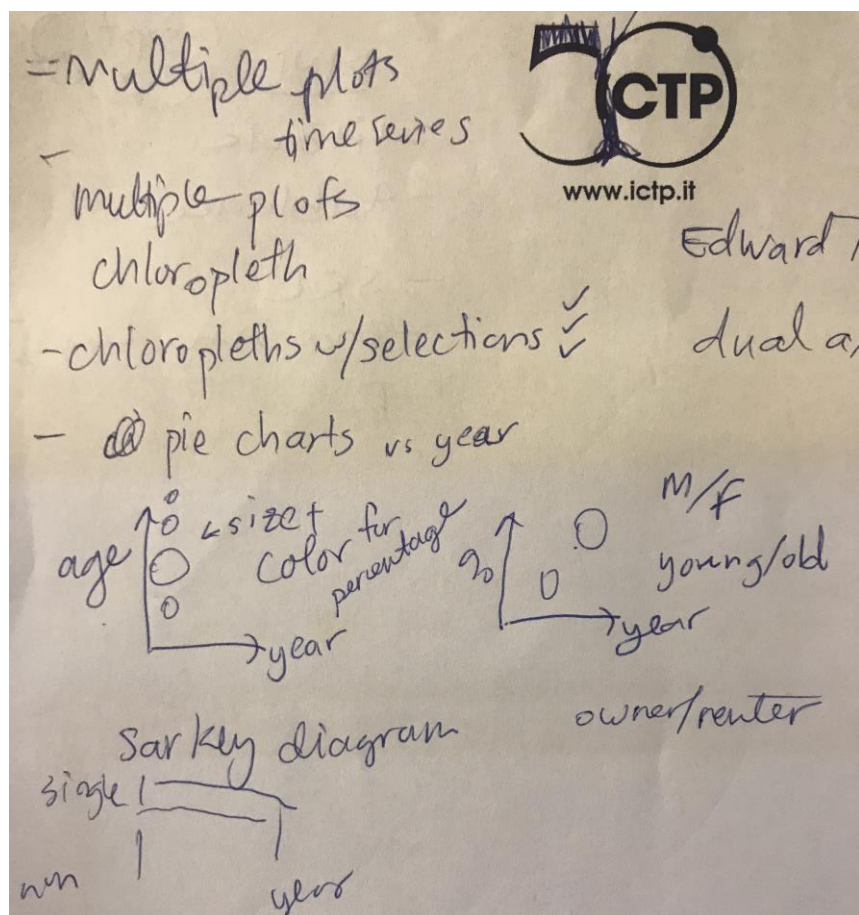 = multiple plots
time series
CTP
www.ictp.it
- multiple plots
chloropleth
Edward
- chloropleths w/selections ✓✓✓
dual a
- pie charts vs year
age
size +
color for
percentage
year
%
year
M/F
young/old
owner/renter
Sankey diagram
single
year